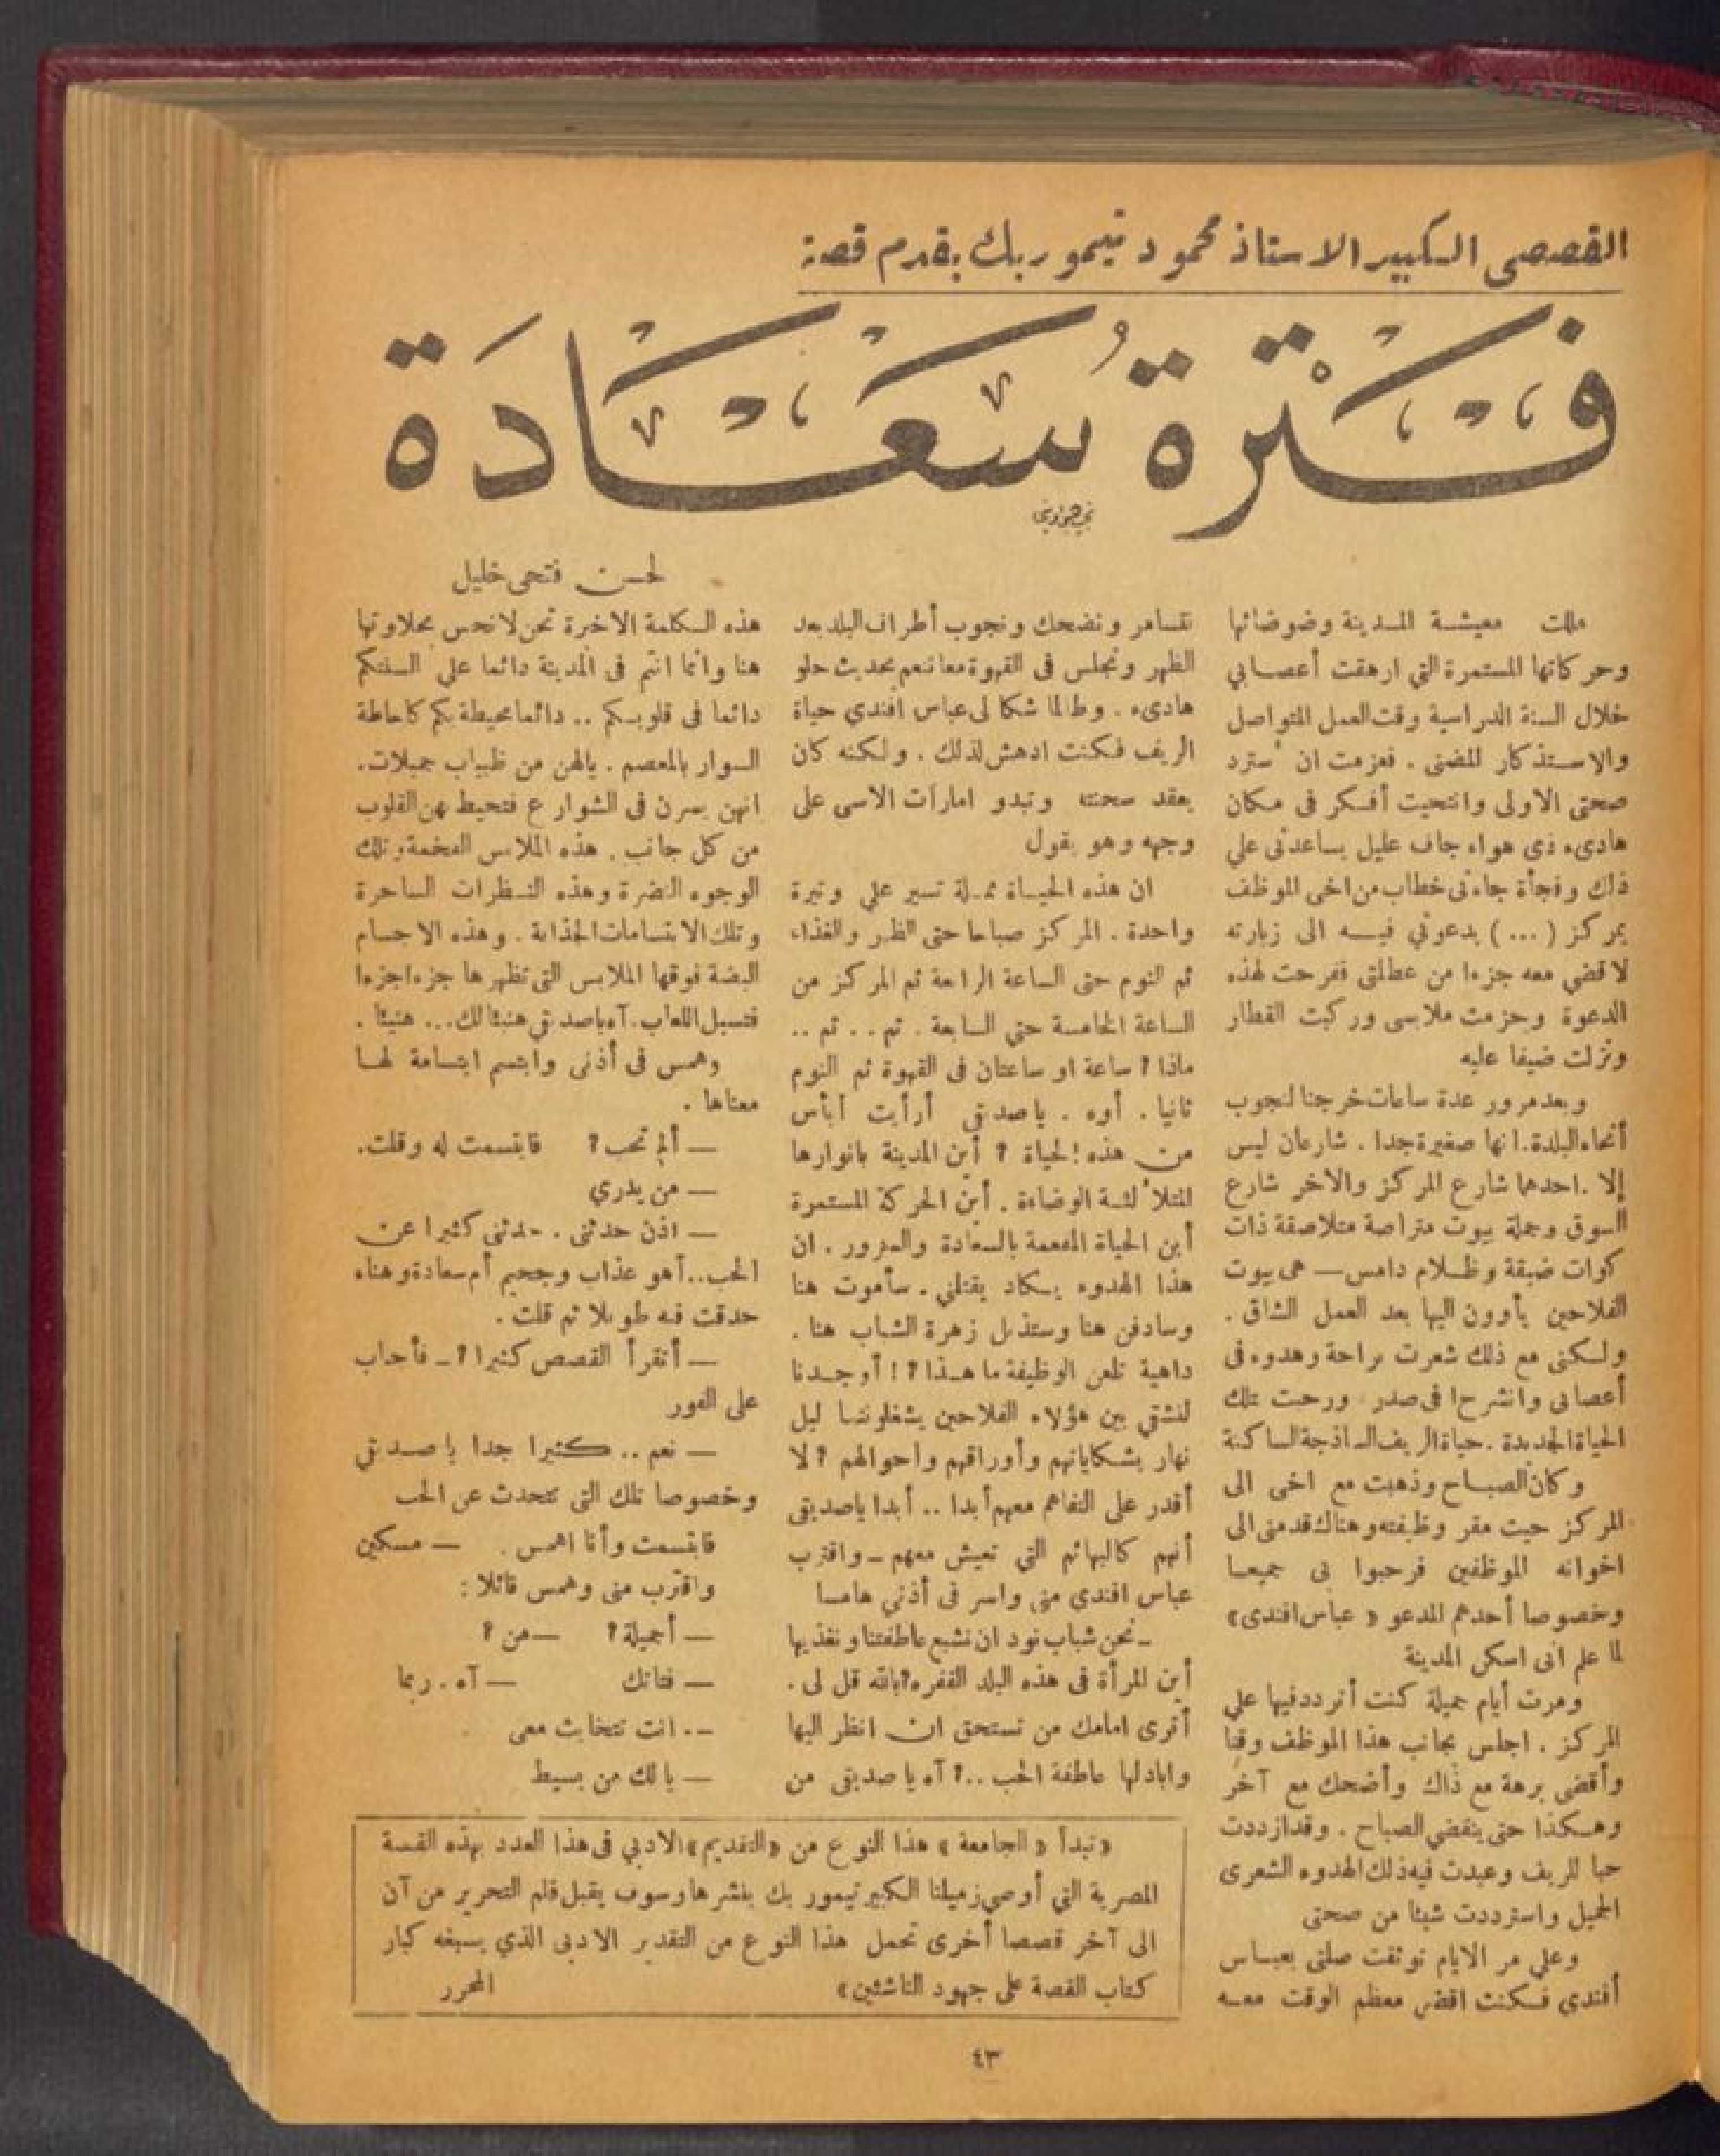 القصصى الكبير الاستاذ محمود تيمور بك يقدم قصة
فترة سعادة
لحسن فتحى خليل
مللت معيشة المدينة وضوضائها
وحركاتها المستمرة التي ارهقت أعصابي
خلال السنة الدراسية وقت العمل المتواصل
والاستذكار المضنى . فعزمت ان أسترد
صحتى الاولى وانتحيت أفكر فى مكان
هادىء ذى هواء جاف عليل يساعدنى علي
ذلك وفجأة جاءنى خطاب من اخى الموظف
بمركز ( ... ) يدعوني فيه الى زيارته
لاقضي معه جزءا من عطلتى ففرحت لهذه
الدعوة وحزمت ملابسى وركبت القطار
ونزلت ضيفا عليه
وبعد مرور عدة ساعات خرجنا لنجوب
أنحاء البلدة. انها صغيرة جدا . شارعان ليس
إلا . احدهما شارع المركز والاخر شارع
السوق وجملة بيوت متراصة متلاصقة ذات
كوات ضيقة وظلام دامس — هى بيوت
الفلاحين يأوون اليها بعد العمل الشاق .
ولكنى مع ذلك شعرت براحة وهدوء فى
أعصابى وانشرحا فى صدر ورحبت بتلك
الحياة الجديدة . حياة الريف الساذجة الساكنة
وكان الصباح وذهبت مع اخى الى
المركز حيت مقر وظيفته وهناك قدمنى الى
اخوانه الموظفين فرحبوا بى جميعا
وخصوصا أحدهم المدعو « عباس افندى »
لما علم انى اسكن المدينة
ومرت أيام جميلة كنت أتردد فيها علي
المركز . اجلس بجانب هذا الموظف وقتا
وأقضى برهة مع ذاك وأضحك مع آخر
وهكذا حتى ينقضي الصباح . وقد ازددت
حبا للريف وعبدت فيه ذلك الهدوء الشعرى
الجميل واسترددت شيئا من صحتى
وعلي مر الايام توثقت صلتى بعباس
أفندي فكنت اقضى معظم الوقت معه
نتسامر ونضحك ونجوب أطراف البلد بعد
الظهر ونجلس فى القهوة معا ننعم بحديث حلو
هادىء . وطالما شكا لى عباس افندي حياة
الريف فكنت ادهش لذلك . ولكنه كان
يعقد سحنته وتبدو امارات الاسى على
وجهه وهو يقول
ان هذه الحياة مملة تسير علي وتيرة
واحدة . المركز صباحا حتى الظهر والغذاء
ثم النوم حتى الساعة الرابعة ثم المركز من
الساعة الخامسة حتى السابعة . ثم . . ثم ..
ماذا ؟ ساعة او ساعتان فى القهوة ثم النوم
ثانيا . أوه . ياصديقى أرأيت أبأس
من هذه الحياة ؟ أين المدينة بانوارها
المتلألئة الوضاءة . أين الحركة المستمرة
أين الحياة المفعمة بالسعادة والسرور . ان
هذا الهدوء يكاد يقتلني . سأموت هنا
وسادفن هنا وستذبل زهرة الشباب هنا .
داهية تلعن الوظيفة ما هذا ؟ ! أوجدنا
لنشقى بين هؤلاء الفلاحين يشغلوننا ليل
نهار بشكاياتهم وأوراقهم واحوالهم ؟ لا
أقدر على التفاهم معهم أبدا .. أبدا ياصديقى
أنهم كالبهائم التي تعيش معهم — واقترب
عباس افندي منى واسر فى أذني هامسا
— نحن شباب نود ان نشبع عاطفتنا ونغذيها
أين المرأة فى هذه البلد القفره ؟ بالله قل لى .
أترى امامك من تستحق ان انظر اليها
وابادلها عاطفة الحب .. ؟ آه يا صديقى من
هذه الكلمة الاخيرة نحن لا نحس بحلاوتها
هنا وانما انتم فى المدينة دائما علي السنتكم
دائما فى قلوبكم .. دائما محيطة بكم كاحاطة
السوار بالمعصم . يالهن من ظبيات جميلات .
انهن يسرن فى الشوارع فتحيط بهن القلوب
من كل جانب . هذه الملابس الفخمة وتلك
الوجوه النضرة وهذه النظرات الساحرة
وتلك الابتسامات الجذابة . وهذه الاجسام
البضة فوقها الملابس التى تظهرها جزءا جزءا
فتسيل اللعاب. آه ياصديقي هنيئا لك ... هنيئا .
وهمس فى أذنى وابتسم ابتسامة لها
معناها .
— ألم تحب ؟ فابتسمت له وقلت .
— من يدري
— اذن حدثنى . حدثنى كثيرا عن
الحب .. أهو عذاب وجحيم أم سعادة وهناء
حدقت فيه طويلا ثم قلت .
— أتقرأ القصص كثيرا ؟ — فأجاب
على الفور
— نعم .. كثيرا جدا يا صديقي
وخصوصا تلك التى تتحدث عن الحب
فابتسمت وأنا اهمس . — مسكين
واقترب منى وهمس قائلا :
— أجميلة ؟ — من ؟
— فتاتك — آه . ربما
— . انت تتخابث معى
— يالك من بسيط
«تبدأ « الجامعة » هذا النوع من «التقديم» الادبي فى هذا العدد بهذه القصة
المصرية التي أوصى زميلنا الكبير تيمور بك بنشرها وسوف يقبل قلم التحرير من آن
الى آخر قصصا أخرى تحمل هذا النوع من التقدير الادبى الذي يسبغه كبار
كتاب القصة على جهود الناشئين» المحرر
٤٣